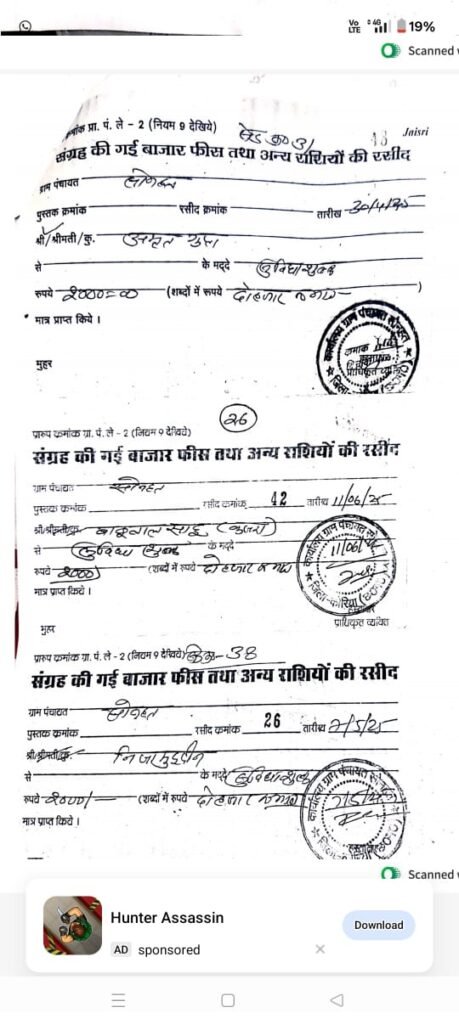 Vo LTE 4G 19%
Scanned
प्रा. पं. ले - 2 (नियम 9 देखिये)
18 Jaisri
संग्रह की गई बाजार फीस तथा अन्य राशियों की रसीद
ग्राम पंचायत सोनहत
पुस्तक क्रमांक रसीद क्रमांक तारीख 30/4/25
श्री/श्रीमती/कु. अमृत गुप्ता
से के मद्दे सुविधा शुल्क
रूपये 2000=00 (शब्दों में रूपये दो हजार )
मात्र प्राप्त किये ।
कार्यालय ग्राम पंचायत सोनहत
मुहर
26
प्रारुप क्रमांक ग्रा. पं. ले - 2 (नियम 9 देखिये)
संग्रह की गई बाजार फीस तथा अन्य राशियों की रसीद
ग्राम पंचायत सोनहत
पुस्तक क्रमांक रसीद क्रमांक 42 तारीख 11/06/25
श्री/श्रीमती/कु. साहू
से सुविधा शुल्क के मद्दे
रूपये 2000) (शब्दों में रूपये दो हजार
मात्र प्राप्त किये ।
कार्यालय ग्राम पंचायत
11/06/25
जिला-कोरिया (छ०ग०)
मुहर
प्राधिकृत व्यक्ति
प्रारुप क्रमांक ग्रा. पं. ले - 2 (नियम 9 देखिये) 38
संग्रह की गई बाजार फीस तथा अन्य राशियों की रसीद
ग्राम पंचायत सोनहत
पुस्तक क्रमांक रसीद क्रमांक 26 तारीख 7/5/25
श्री/श्रीमती/कु. निजामुद्दीन
से के मद्दे सुविधा शुल्क
रूपये 2000/= (शब्दों में रूपये दो हजार
मात्र प्राप्त किये ।
कार्यालय ग्राम पंचायत
Scanned
Hunter Assassin
AD sponsored
Download